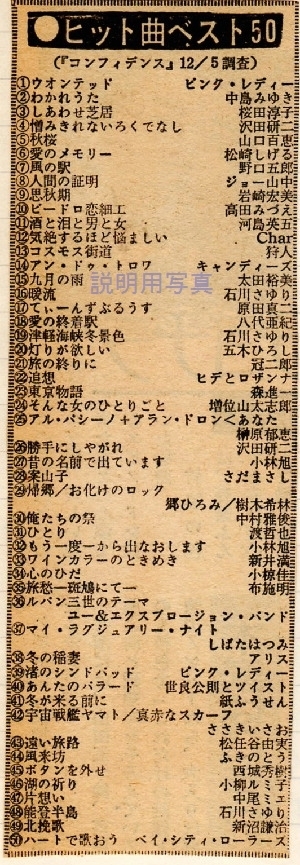 ●ヒット曲ベスト50
(『コンフィデンス』12/5調査)
①ウオンテッド ピンク・レディー
②わかれうた 中島みゆき
③しあわせ芝居 桜田淳子
④憎みきれないろくでなし 沢田研二
⑤秋桜 山口百恵
⑥愛のメモリー 松崎しげる
⑦風の駅 野口五郎
⑧人間の証明 ジョー山中
⑨思秋期 岩崎宏美
⑩ビードロ恋細工 高田みづえ
⑪酒と泪と男と女 河島英五
⑫気絶するほど悩ましい Char
⑬コスモス街道 狩人
⑭アン・ドゥ・トロワ キャンディーズ
⑮九月の雨 太田裕美
⑯暖流 石川さゆり
⑰てぃーんずぶるうす 原田真二
⑱愛の終着駅 八代亜紀
⑲津軽海峡冬景色 石川さゆり
⑳灯りが欲しい 五木ひろし
㉑旅の終りに 冠二郎
㉒追想 ヒデとロザンナ
㉓東京物語 森進一
㉔そんな女のひとりごと 増位山太志郎
㉕アル・パシーノ+アラン・ドロン<あなた
榊原郁恵
㉖勝手にしやがれ 沢田研二
㉗昔の名前で出ています 小林旭
㉘案山子 さだまさし
㉙帰郷/お化けのロック
郷ひろみ/樹木希林
㉚俺たちの祭 中村雅俊
㉛ひとり 渡哲也
㉜もう一度一から出なおします 小林旭
㉝ワインカラーのときめき 新井満
㉞心のひだ 小椋佳
㉟旅愁―斑鳩にて― 布施明
㊱ルパン三世のテーマ
ユー&エクスプロージョン・バンド
㊲マイ・ラグジュアリー・ナイト
しばたはつみ
㊳冬の稲妻 アリス
㊴渚のシンドバッド ピンク・レディー
㊵あんたのバラード 世良公則とツイスト
㊶冬が来る前に 紙ふうせん
㊷宇宙戦艦ヤマト/真赤なスカーフ
ささきいさお
㊸遠い旅路 松任谷由実
㊹風来坊 ふきのとう
㊺ボタンを外せ 西城秀樹
㊻湖の祈り 小柳ルミ子
㊼片想い 中尾ミエ
㊽能登半島 石川さゆり
㊾北挽歌 新沼謙治
㊿ハートで歌おう ベイ・シティ・ローラーズ
説明用写真